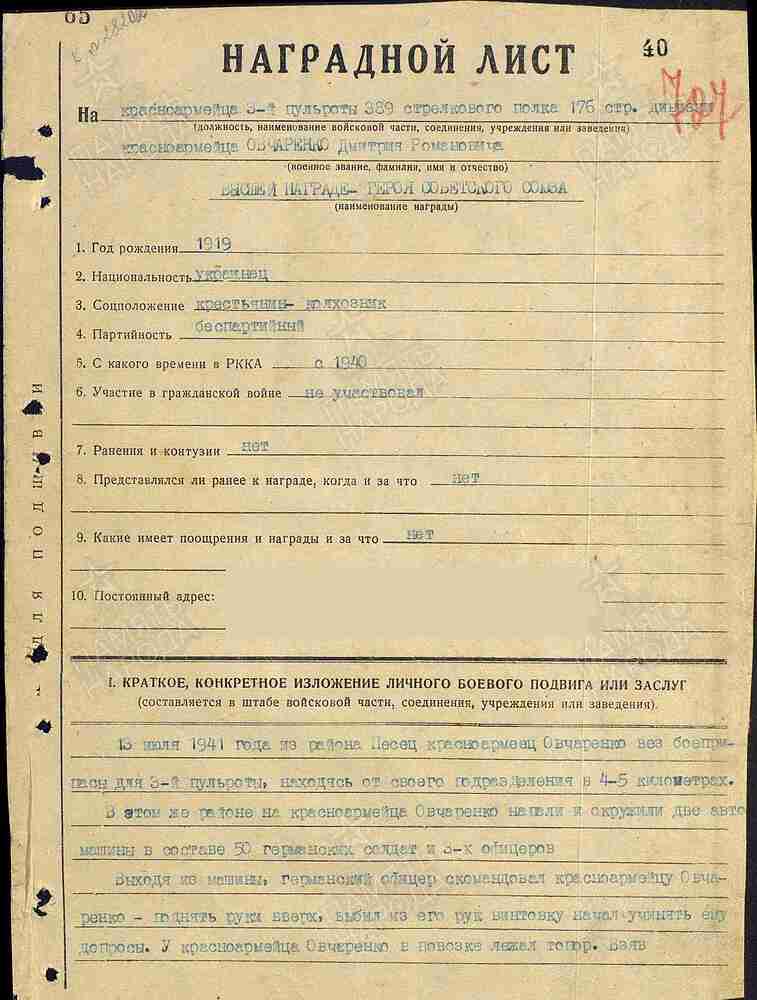 65
40
НАГРАДНОЙ ЛИСТ
727
На красноармейца 3-й пульроты 389 стрелкового полка 176 стр. дивизии
(должность, наименование войсковой части, соединения, учреждения или заведения)
красноармейца ОВЧАРЕНКО Дмитрия Романовича
(военное звание, фамилия, имя и отчество)
ВЫСШЕЙ НАГРАДЕ- ГЕРОЯ СОВЕТСКОГО СОЮЗА
(наименование награды)
1. Год рождения 1919
2. Национальность украинец
3. Соцположение крестьянин- колхозник
4. Партийность беспартийный
5. С какого времени в РККА с 1940
6. Участие в гражданской войне не участвовал
7. Ранения и контузии нет
8. Представлялся ли ранее к награде, когда и за что нет
9. Какие имеет поощрения и награды и за что нет
10. Постоянный адрес:
I. КРАТКОЕ, КОНКРЕТНОЕ ИЗЛОЖЕНИЕ ЛИЧНОГО БОЕВОГО ПОДВИГА ИЛИ ЗАСЛУГ
(составляется в штабе войсковой части, соединения, учреждения или заведения).
13 июля 1941 года из района Песец красноармеец Овчаренко вез боепри-
пасы для 3-й пульроты, находясь от своего подразделения в 4-5 километрах.
В этом же районе на красноармейца Овчаренко напали и окружили две авто
машины в составе 50 германских солдат и 3-х офицеров
Выходя из машины, германский офицер скомандовал красноармейцу Овча-
ренко - поднять руки вверх, выбил из его рук винтовку начал учинять ему
допросы. У красноармейца Овчаренко в повозке лежал топор. Взяв
ДЛЯ ПОДШИВКИ
ПАМЯТЬ НАРОДА